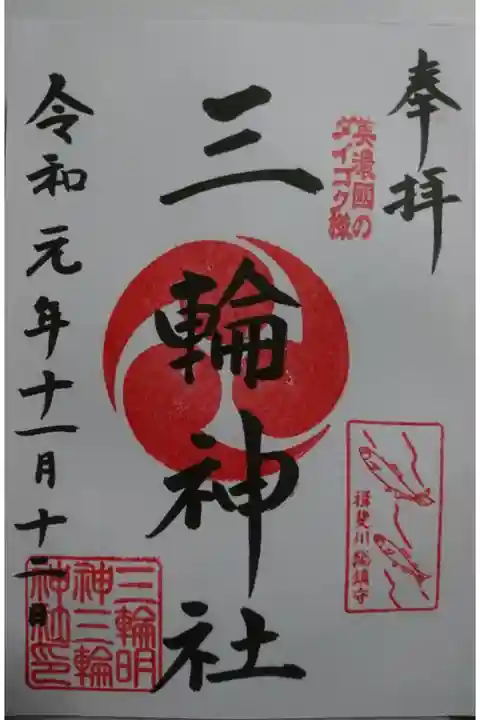 奉拝
美濃國の
ダイコク様
三輪神社
揖斐川総鎮守
三輪明
神三輪
神社印
令和元年十一月十二日